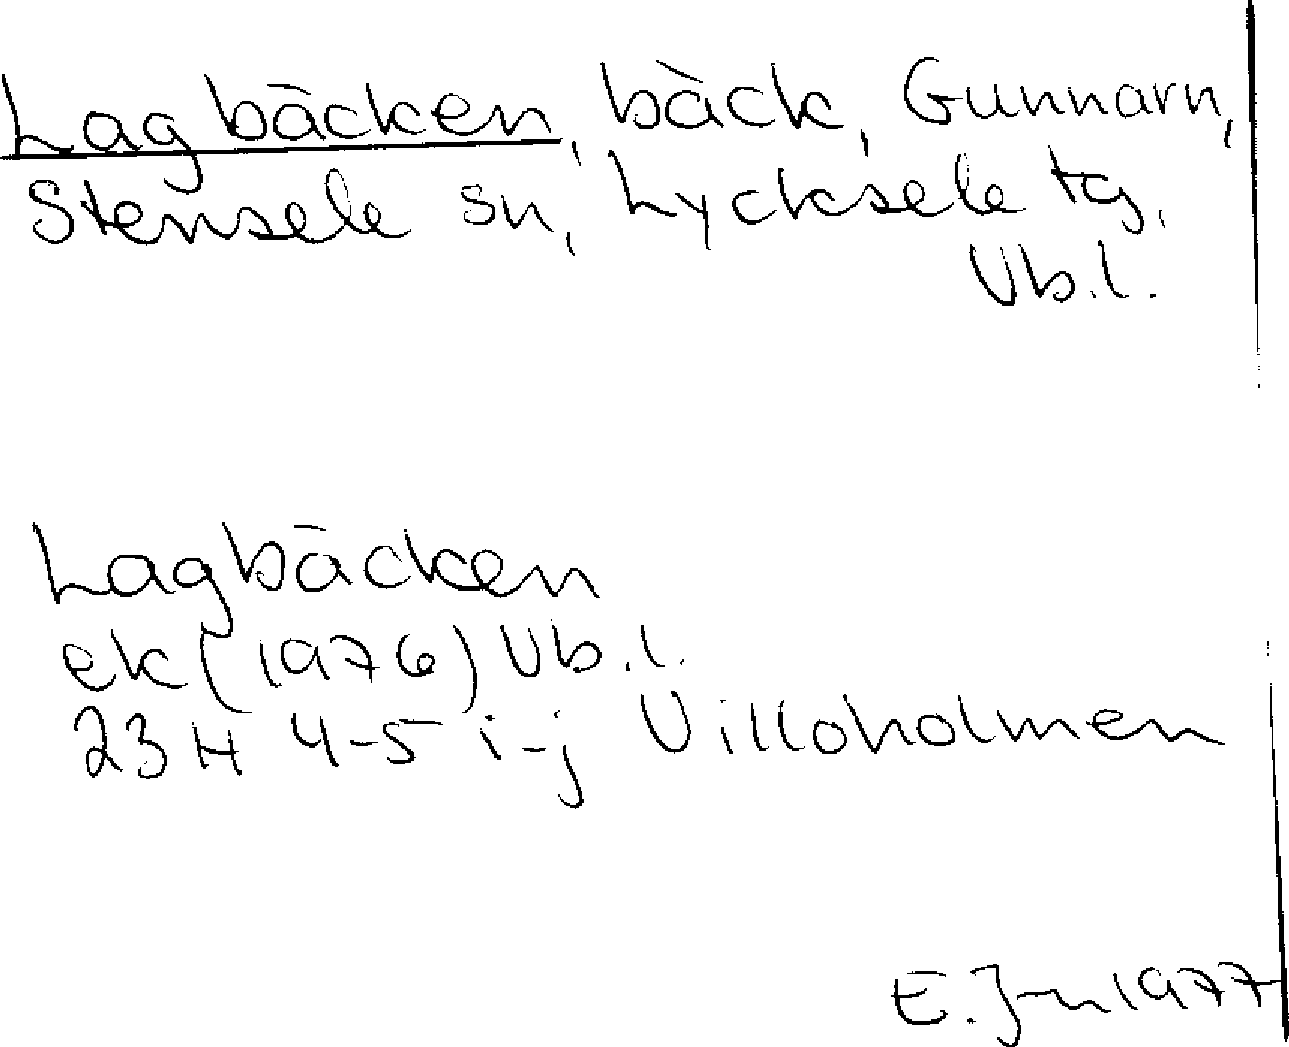 Lagbäcken, bäck, Gunnarn,
Stensele sn, Lycksele tg,
Vb.l.
Lagbäcken
ek (1976) Vb.l.
23H 4-5 i-j Villoholmen
E. J-n 1977